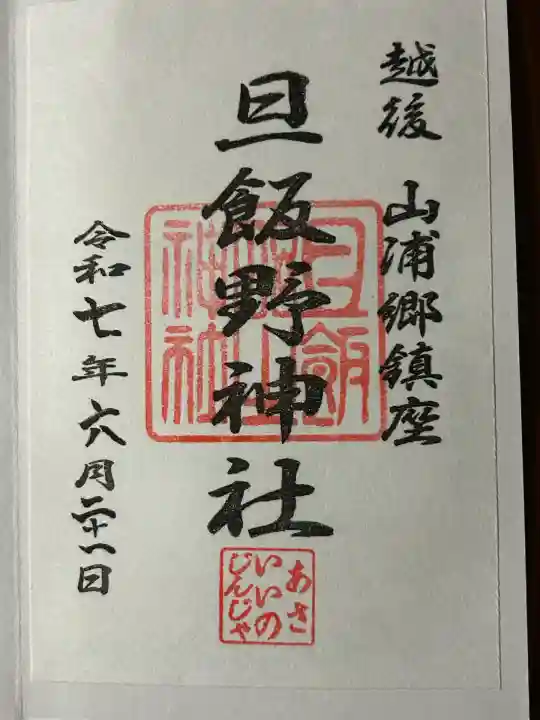 越後 山浦郷鎮座
旦飯野神社
令和七年六月二十一日
あさ
いいの
じんじゃ